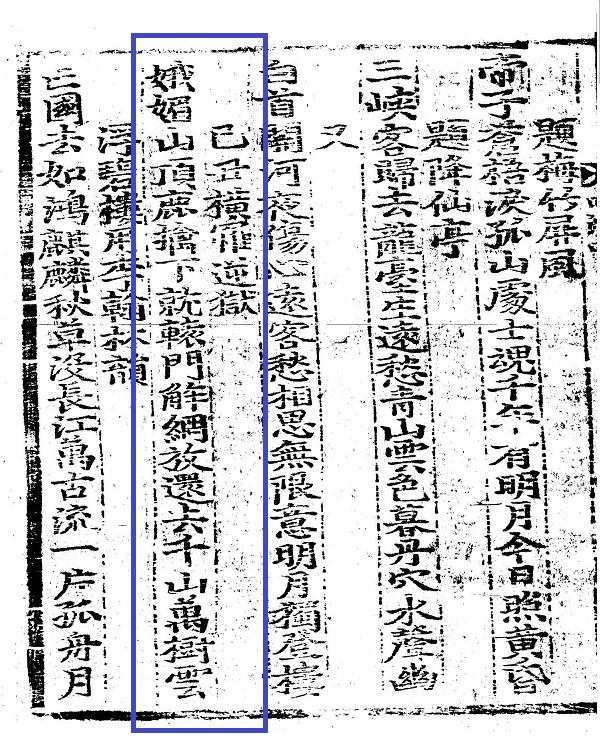 題梅竹屏風
帝子蒼梧淚孤山處士魂千年有明月今日照黃昏
題降仙亭
三峽客歸去龍臺遠愁青山雲色暮丹穴水聲幽
又
白首關河夜傷心遠客愁相思無限意明月獨登樓
己丑橫罹逆獄
娥媚山頂鹿擒下就轅門解網放還去千山萬樹雲
浮碧樓用李韻
亡國去如鴻麒麟秋草沒長江萬古流一片孤舟月